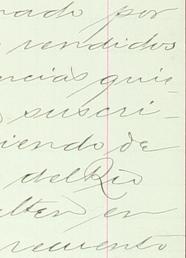 rado por
rendidos
ncias quie
suscri-
iendo de
del Rio
alten en
recuento